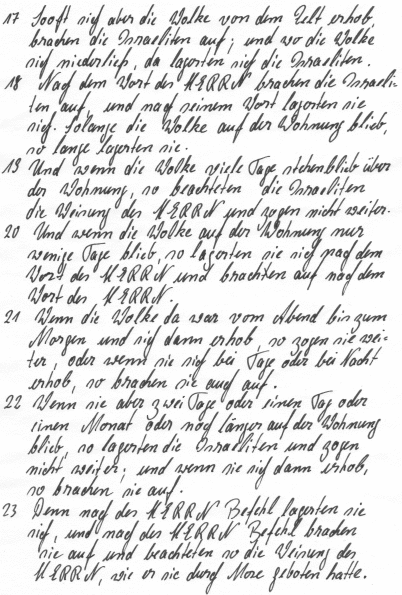 17 Sooft sich aber die Wolke von dem Zelt erhob,
brachen die Israeliten auf; und wo die Wolke
sich niederließ, da lagerten sich die Israeliten.
18 Nach dem Wort des HERRN brachen die Israeli-
ten auf, und nach seinem Wort lagerten sie
sich. Solange die Wolke auf der Wohnung blieb,
so lange lagerten sie.
19 Und wenn die Wolke viele Tage stehenblieb über
der Wohnung, so beachteten die Israeliten
die Weisung des HERRN und zogen nicht weiter.
20 Und wenn die Wolke auf der Wohnung nur
wenige Tage blieb, so lagerten sie sich nach dem
Wort des HERRN und brachten auf nach dem
Wort des HERRN.
21 Wenn die Wolke da war vom Abend bis zum
Morgen und sich dann erhob, so zogen sie wei-
ter, oder wenn sie sich bei Tage oder bei Nacht
erhob, so brachen sie auch auf.
22 Wenn sie aber zwei Tage oder einen Tag oder
einen Monat oder noch länger auf der Wohnung
blieb, so lagerten die Israeliten und zogen
nicht weiter; und wenn sie sich dann erhob,
so brachen sie auf.
23 Denn nach des HERRN Befehl lagerten sie
sich, und nach des HERRN Befehl brachen
sie auf und beachteten so die Weisung des
HERRN, wie er sie durch Mose geboten hatte.